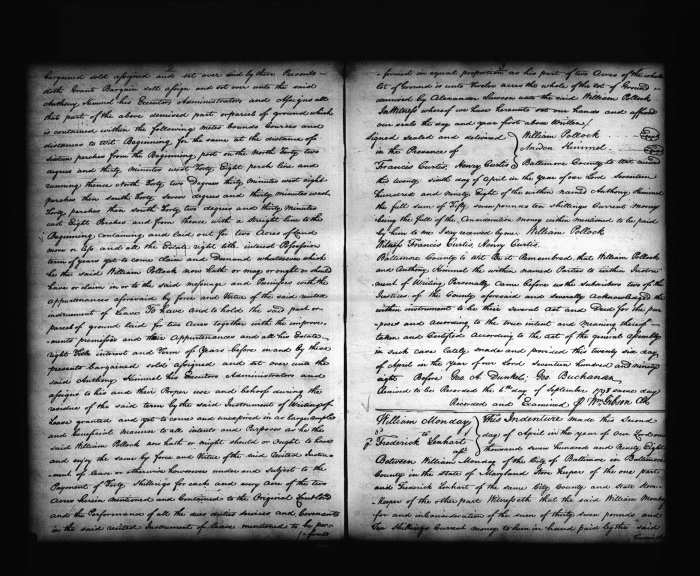 bargained sold assigned and set over and by these Presents
doth Grant Bargain sell assign and set over unto the said
Anthony Hummel his Executors Administrators and Assigns all
that part of the above demised part or parcel of ground which
is contained within the following Metes bounds Courses and
distances to wit Beginning for the same at the distance of
sixteen perches from the Beginning post on the North Forty two
degrees and thirty Minutes west Forty Eight perch line and
running thence North Forty two Degrees thirty Minutes west eight
perches then south Forty seven degrees and thirty minutes west
Forty perches then south Forty two degrees and thirty Minutes
east Eight Perches and from thence with a straight line to the
Beginning containing and laid out for two Acres of Land
more or less and all the Estate right title interest Possession
term of years yet to come claim and Demand whatsoever which
he the said William Pollock now hath or may or ought or should
have or claim in or to the said messuage and Premises with the
appurtenances aforesaid by force and Virtue of the said recited
instrument of Lease To have and to hold the said part or
parcel of ground laid for two Acres together with the improve-
-ments premises and their Appurtenances and all his Estate
right Title interest and Term of Years before in and by these
presents bargained sold assigned and set over unto the
said Anthony Hummel his Executors Administrators and
assigns to his and their Proper use and behoof during the
residue of the said term by the said Instrument of Writing of
Lease granted and yet to come and unexpired in as large ample
and beneficial Manner to all intents and Purposes as he the
said William Pollock now hath or might should or ought to have
and enjoy the same by force and Virtue of the said recited Instru-
-ment of lease or otherwise however under and subject to the
Payment of Forty shillings for each and every Acre of the two
Acres herein mentioned and Contained to the Original Landlord
and the Performance of all the dues duties services and Covenants
in the said recited Instrument of lease mentioned to be per-
-formed
-formed in equal proportion as his part of two Acres of the whole
lot of Ground is unto Twelve acres the whole of the lot of Ground
demised by Alexander Lawson unto the said William Pollock
In Witness whereof we have hereunto set our hands and affixed
our seals the day and year first above Written
Signed sealed and delivered William Pollock
in the Presence of Hummel
Francis Curtis, Henry Curtis Baltimore County to wit
this twenty sixth day of April in the year of our Lord seventeen
hundred and ninety Eight of the within named Anthony Hummel
the full sum of Fifty seven pounds ten shillings Current Money
being the full of the Consideration money within mentioned to be paid
by him to me I say received by me William Pollock
Witness Francis Curtis, Henry Curtis.
Baltimore County to wit Be it Remembered that William Pollock
and Anthony Hummel the within named Parties to within Instru-
-ment of Writing Personally Came before us the subscribers two of the
Justices of the County aforesaid and severally Acknowledged the
within instrument to be their several Act and Deed for the pur-
-poses and according to the true intent and Meaning thereof
taken and Certified According to the Act of the general Assembly
in such case lately made and provided this twenty six day
of April in the year of our Lord seventeen hundred and ninety
eight Before Geo A. Dunkel, Geo. Buchanan
Received to be Recorded the 6th day of September 1798 same day
Recorded and Examined Wm Gibson Clk
William Monday
to
Frederick Linhart
This Indenture made this second
day of April in the year of our Lord one
thousand seven hundred and Ninety Eight
Between William Monday of the City of Baltimore in Baltimore
County in the state of Maryland Store Keeper of the one part
and Frederick Linhart of the same City County and state Store-
-keeper of the other part Witnesseth that the said William Monday
for and in Consideration of the sum of thirty seven pounds and
ten shillings Current money to him in hand paid by the said